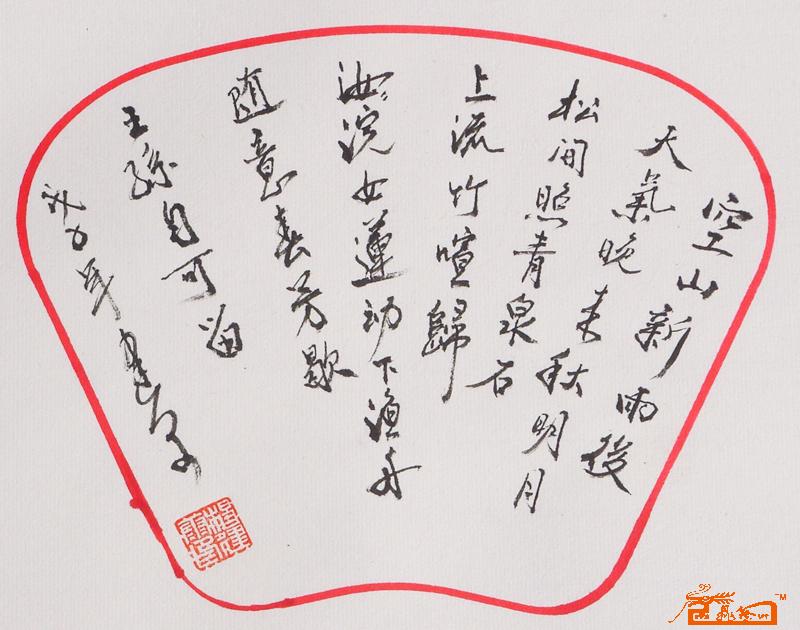 空山新雨後
天氣晚来秋明月
松间照青泉石
上流竹喧歸
汝浣女蓮动下渔舟
随意春芳歇
王孫自可留